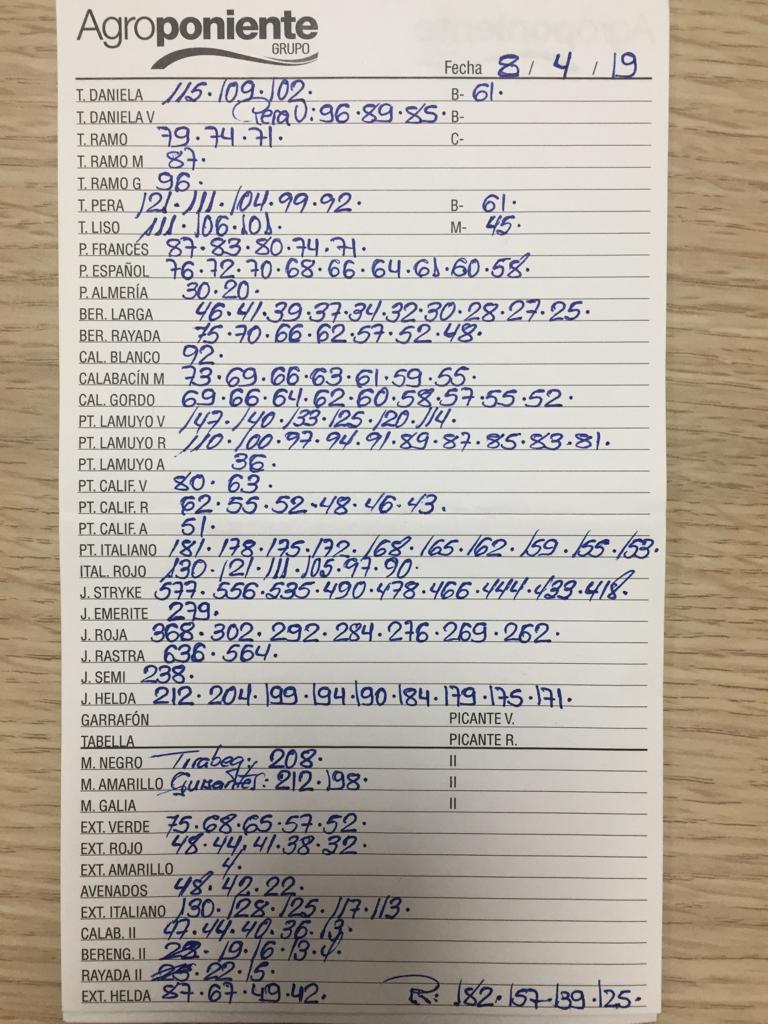 Agroponiente
GRUPO
Fecha 8 / 4 / 19
T. DANIELA 115. 109. 102. B- 61.
T. DANIELA V Pera V: 96. 89. 85. B-
T. RAMO 79. 74. 71. C-
T. RAMO M 87.
T. RAMO G 96.
T. PERA 121. 111. 104. 99. 92. B- 61.
T. LISO 111. 106. 101. M- 45.
P. FRANCÉS 87. 83. 80. 74. 71.
P. ESPAÑOL 76. 72. 70. 68. 66. 64. 61. 60. 58.
P. ALMERÍA 30. 20.
BER. LARGA 46. 41. 39. 37. 34. 32. 30. 28. 27. 25.
BER. RAYADA 75. 70. 66. 62. 57. 52. 48.
CAL. BLANCO 92.
CALABACÍN M 73. 69. 66. 63. 61. 59. 55.
CAL. GORDO 69. 66. 64. 62. 60. 58. 57. 55. 52.
PT. LAMUYO V 147. 140. 133. 125. 120. 114.
PT. LAMUYO R 110. 100. 97. 94. 91. 89. 87. 85. 83. 81.
PT. LAMUYO A 36.
PT. CALIF. V 80. 63.
PT. CALIF. R 62. 55. 52. 48. 46. 43.
PT. CALIF. A 51.
PT. ITALIANO 181. 178. 175. 172. 168. 165. 162. 159. 155. 153.
ITAL. ROJO 130. 121. 111. 105. 97. 90.
J. STRYKE 577. 556. 535. 490. 478. 466. 444. 433. 418.
J. EMERITE 279.
J. ROJA 368. 302. 292. 284. 276. 269. 262.
J. RASTRA 636. 564.
J. SEMI 238.
J. HELDA 212. 204. 199. 194. 190. 184. 179. 175. 171.
GARRAFÓN PICANTE V.
TABELLA PICANTE R.
M. NEGRO Tirabeq: 208. II
M. AMARILLO Guisantes: 212. 198. II
M. GALIA II
EXT. VERDE 75. 68. 65. 57. 52.
EXT. ROJO 48. 44. 41. 38. 32.
EXT. AMARILLO 4.
AVENADOS 48. 42. 22.
EXT. ITALIANO 130. 128. 125. 117. 113.
CALAB. II 47. 44. 40. 36. 13.
BERENG. II 19. 16. 13. 4.
RAYADA II 22. 15.
EXT. HELDA 87. 67. 49. 42. R: 182. 157. 139. 125.